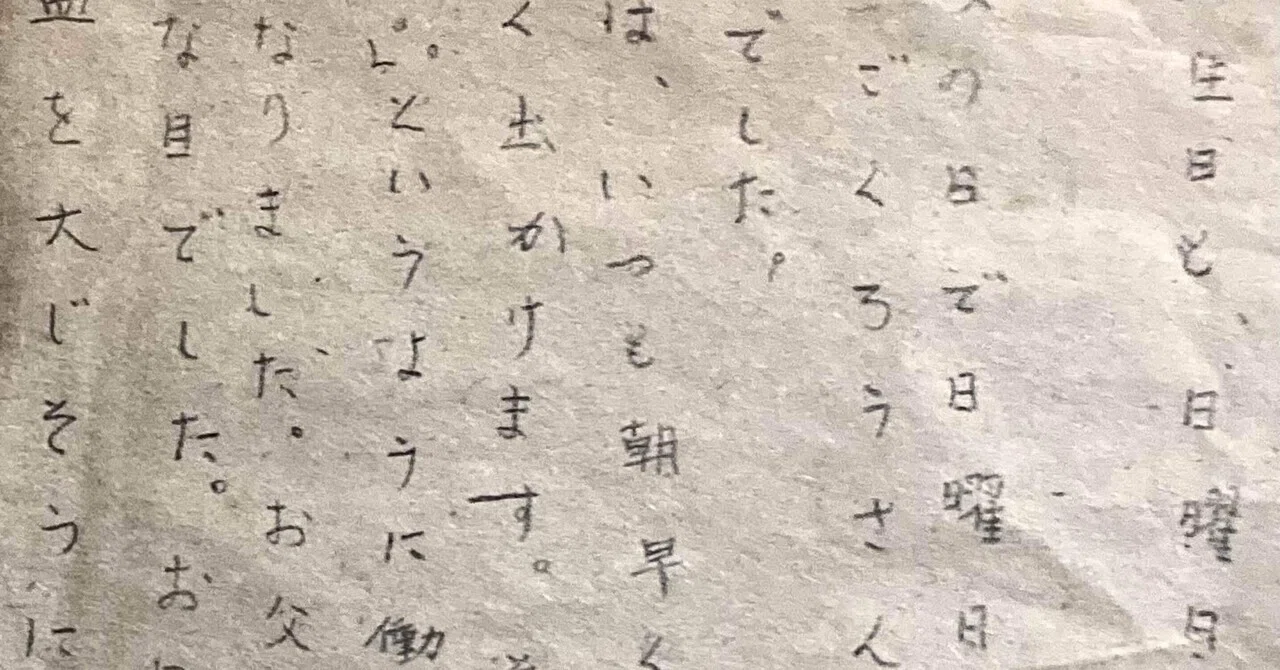 日も、日曜日
の日で日曜日
ごくろうさん
でした。
は、いつも朝早く
く出かけます。
じ。というように働
なりました。お父
な目でした。お
を大じそうに